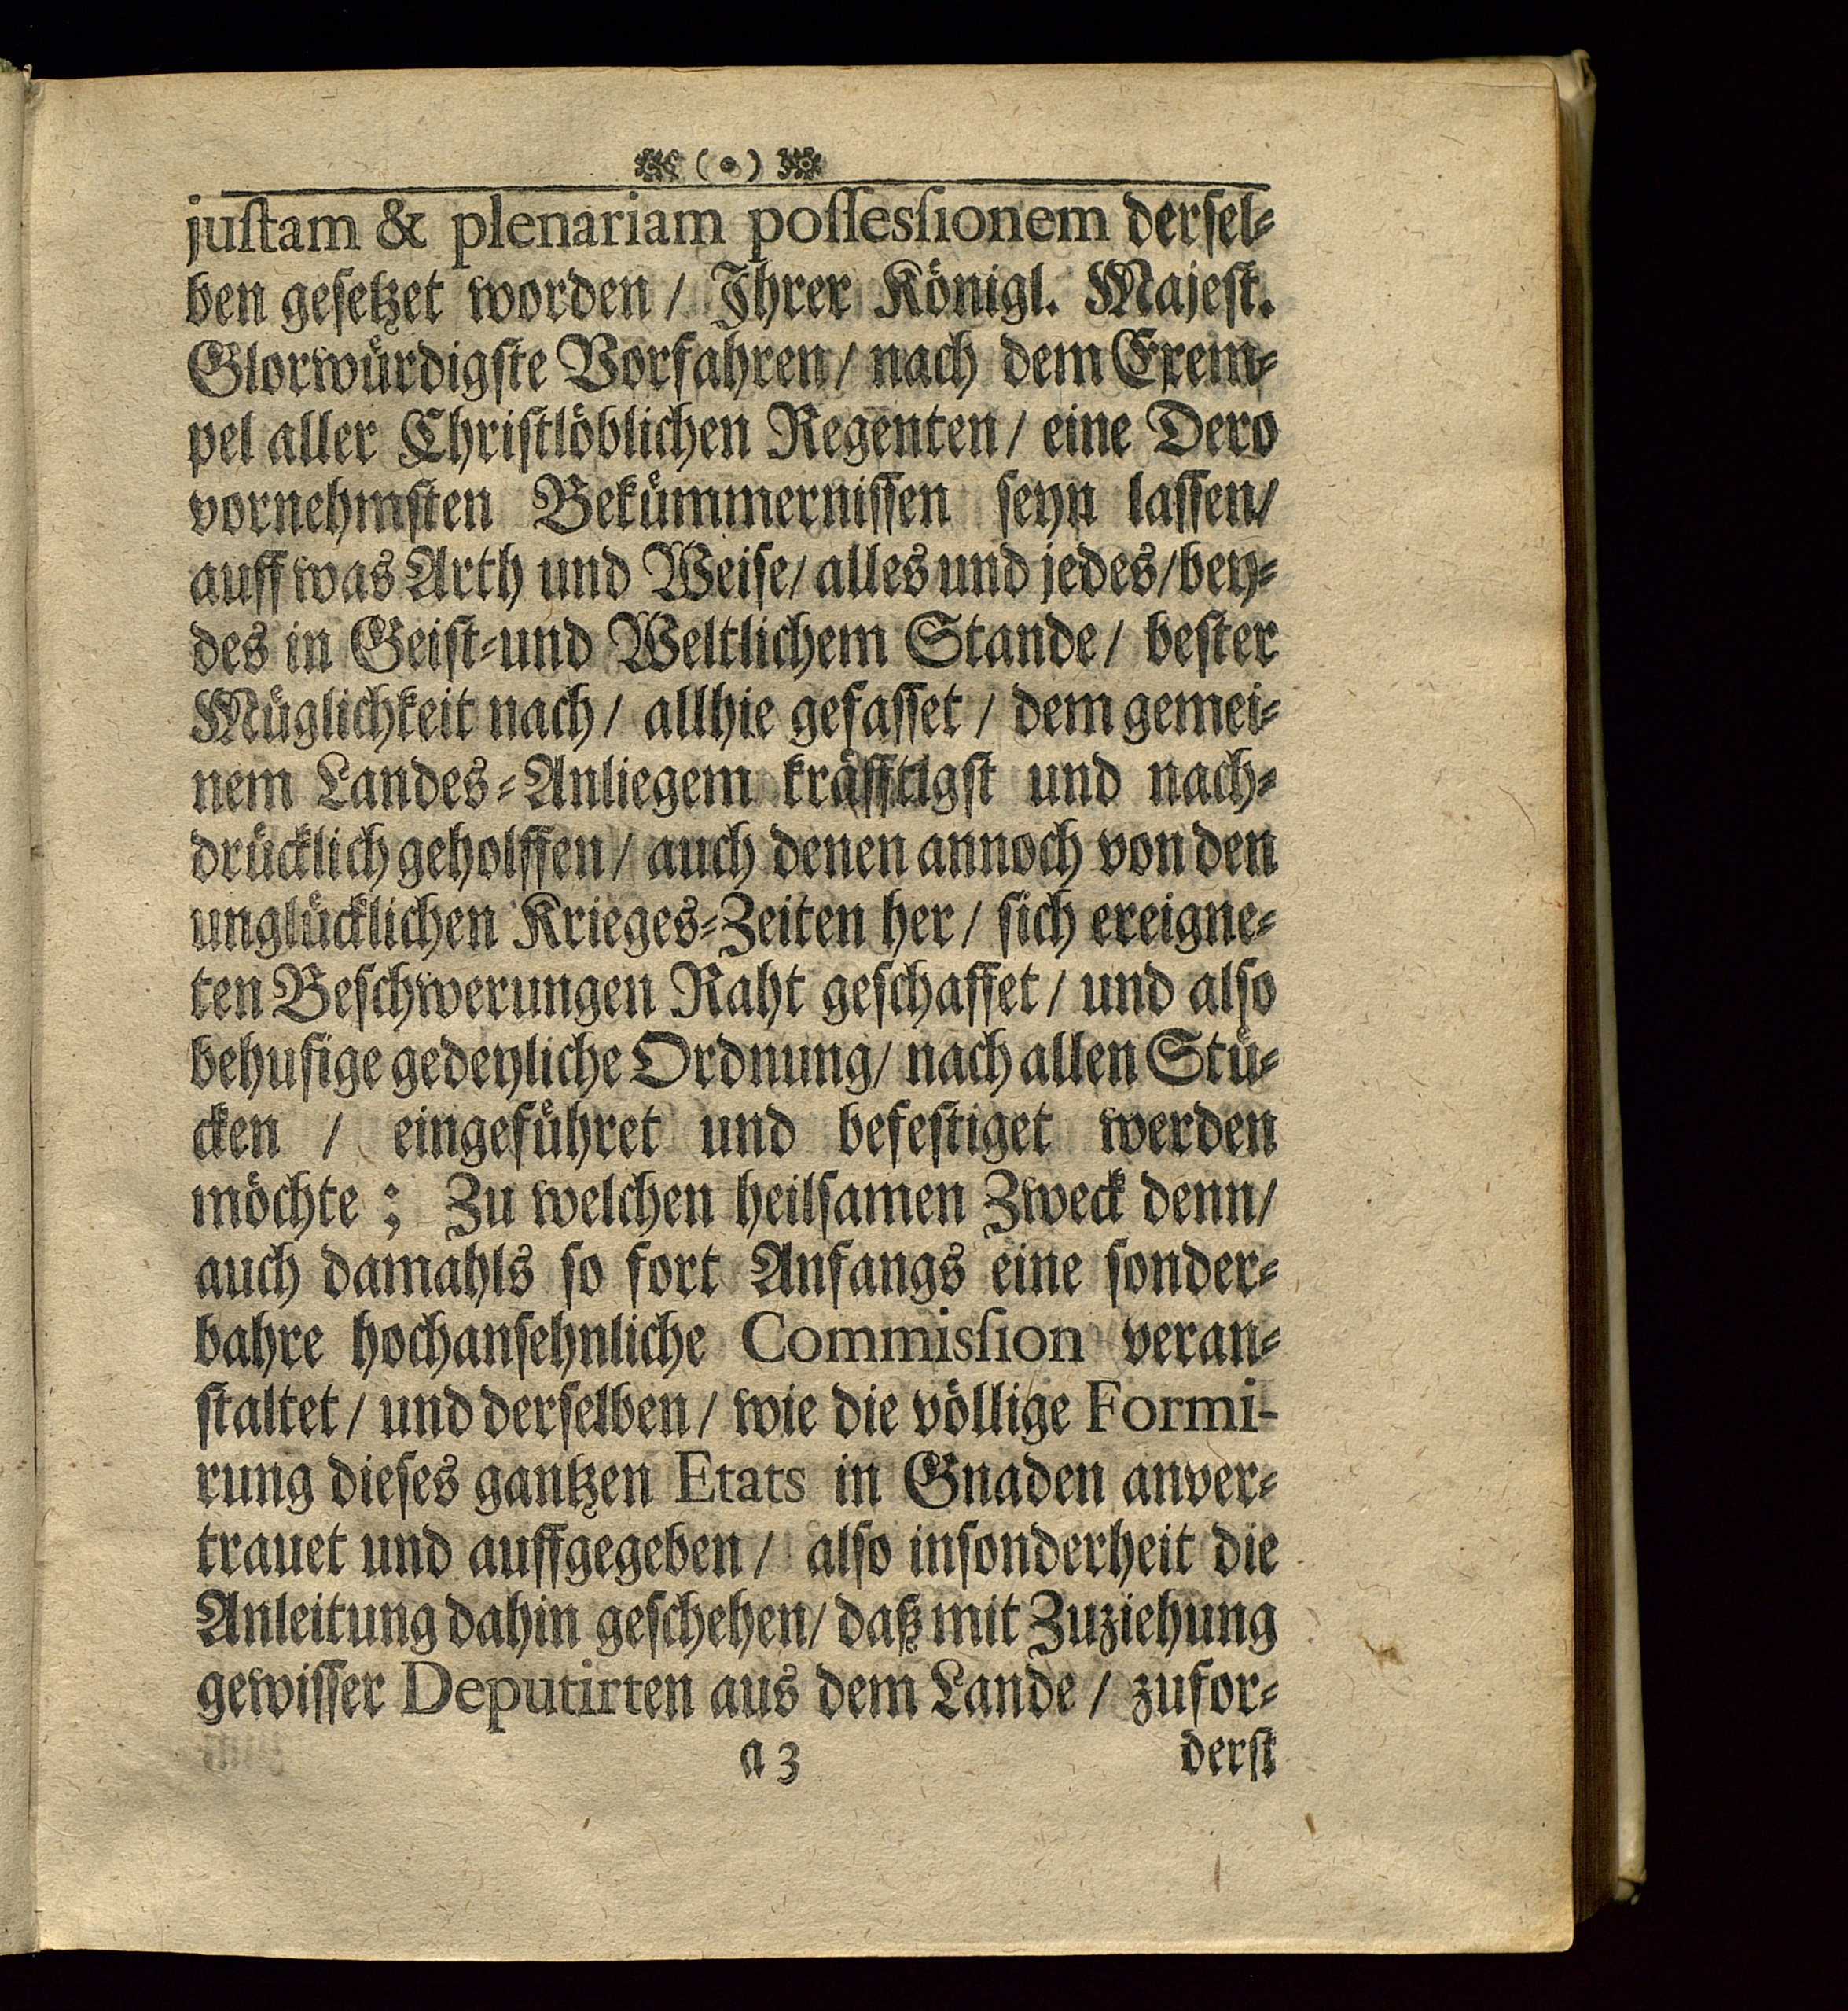 (o)
juſtam & plenariam poſſesſionem derſel⸗
ben geſetzet worden / Ihrer Königl. Majeſt.
Glorwürdigſte Vorfahren / nach dem Exem⸗
pel aller Chriſtlöblichen Regenten / eine Dero
vornehmſten Bekümmerniſſen ſeyn laſſen/
auff was Arth und Weiſe / alles und jedes / bey⸗
des in Geiſt⸗und Weltlichem Stande / beſter
Müglichkeit nach / allhie gefaſſet / dem gemei⸗
nem Landes⸗Anliegem kräfftigſt und nach⸗
drücklich geholffen / auch denen annoch von den
unglücklichen Krieges⸗Zeiten her / ſich ereigne⸗
ten Beſchwerungen Raht geſchaffet / und alſo
behufige gedeyliche Ordnung / nach allen Stü⸗
cken / eingeführet und befeſtiget werden
möchte ; Zu welchen heilſamen Zweck denn/
auch damahls ſo fort Anfangs eine ſonder⸗
bahre hochanſehnliche Commisſion veran⸗
ſtaltet / und derſelben / wie die völlige Formi-
rung dieſes gantzen Etats in Gnaden anver⸗
trauet und auffgegeben / alſo inſonderheit die
Anleitung dahin geſchehen / daß mit Zuziehung
gewiſſer Deputirten aus dem Lande / zufor⸗
a 3 derſt